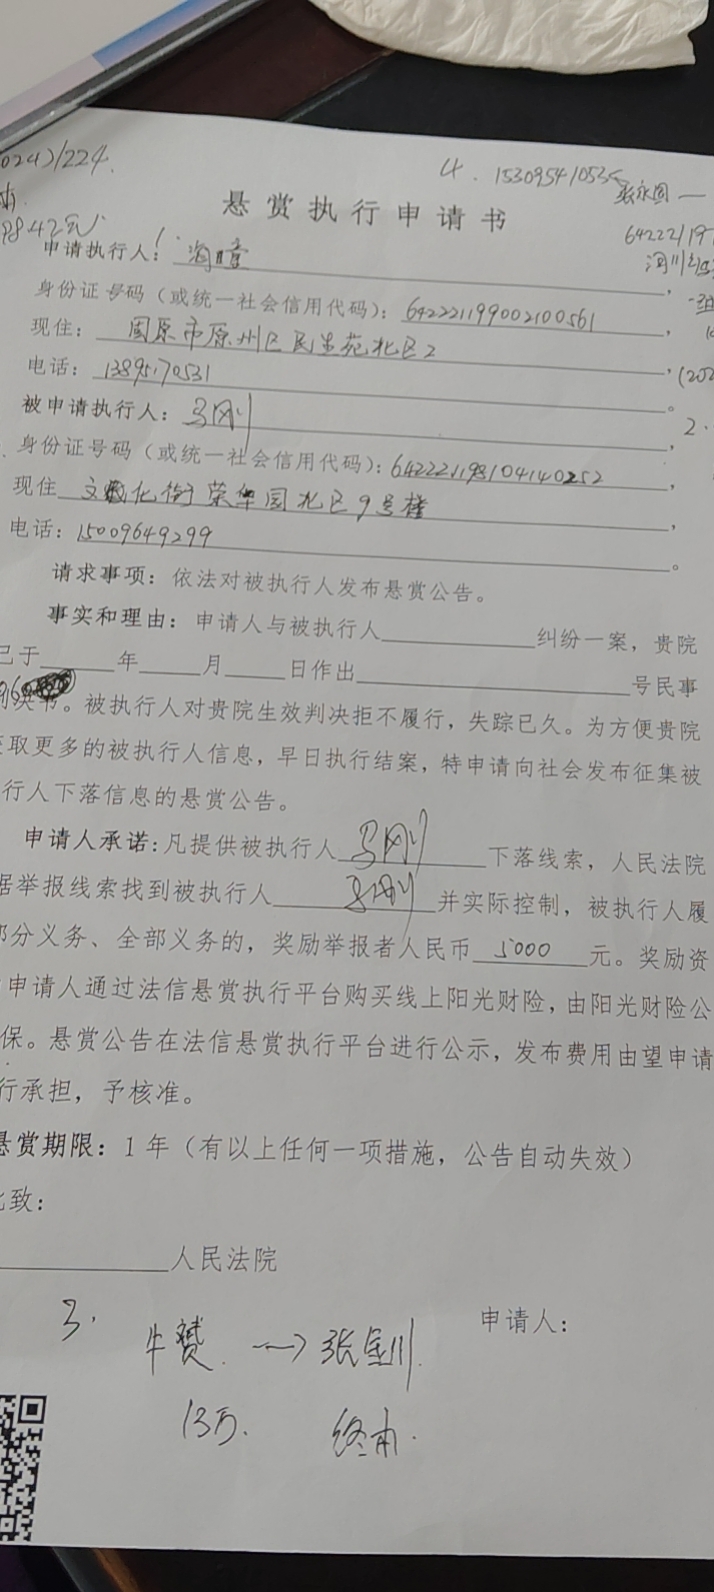 024)1224.
4. 15309541053
悬赏执行申请书
9842元
642221197
申请执行人：海瞳
身份证号码（或统一社会信用代码）：642221199002100561，
现住：固原市原州区民生苑北区2，
电话：13895170531。
(202
被申请执行人：马刚，
2.
身份证号码（或统一社会信用代码）：642221198104140252，
现住 文化街荣华园北区9号楼，
电话：15009649299。
请求事项：依法对被执行人发布悬赏公告。
事实和理由：申请人与被执行人纠纷一案，贵院
已于年月日作出号民事
判决书。被执行人对贵院生效判决拒不履行，失踪已久。为方便贵院
取更多的被执行人信息，早日执行结案，特申请向社会发布征集被
行人下落信息的悬赏公告。
申请人承诺：凡提供被执行人马刚下落线索，人民法院
据举报线索找到被执行人马刚并实际控制，被执行人履
部分义务、全部义务的，奖励举报者人民币5000元。奖励资
申请人通过法信悬赏执行平台购买线上阳光财险，由阳光财险公
保。悬赏公告在法信悬赏执行平台进行公示，发布费用由望申请
行承担，予核准。
悬赏期限：1年（有以上任何一项措施，公告自动失效）
此致：
人民法院
申请人：
3. 牛赟 → 张金川
13万. 终本.